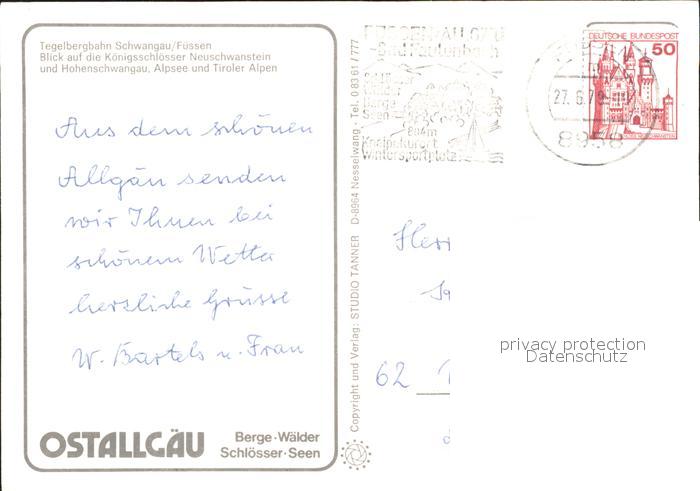 Tegelbergbahn Schwangau/Füssen
Blick auf die Königsschlösser Neuschwanstein
und Hohenschwangau, Alpsee und Tiroler Alpen
Aus dem schönen
Allgäu senden
wir Ihnen bei
schönem Wetter
herzliche Grüsse
W. Bartels u. Frau
OSTALLGÄU
Berge·Wälder
Schlösser·Seen
Copyright und Verlag: STUDIO TANNER D-8964 Nesselwang, Tel. 0 83 61 / 777
FÜSSEN
-Bad Faulenbach
Schlösser
Wälder
Berge
Seen
804m
Kneippkurort
Wintersportplatz
27. 6. 79
8958
DEUTSCHE BUNDESPOST
50
Herr
62
privacy protection
Datenschutz